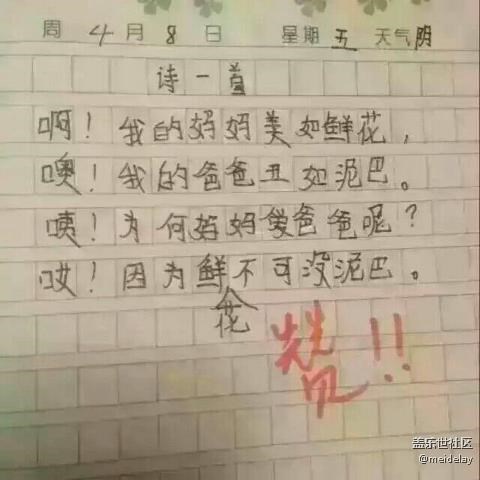 周 4 月 8 日 星期 五 天气 阴
诗一首
啊！我的妈妈美如鲜花，
噢！我的爸爸丑如泥巴。
咦！为何妈妈爱爸爸呢？
哎！因为鲜不可没泥巴。
花
赞!!
盖乐世社区
@meidelay